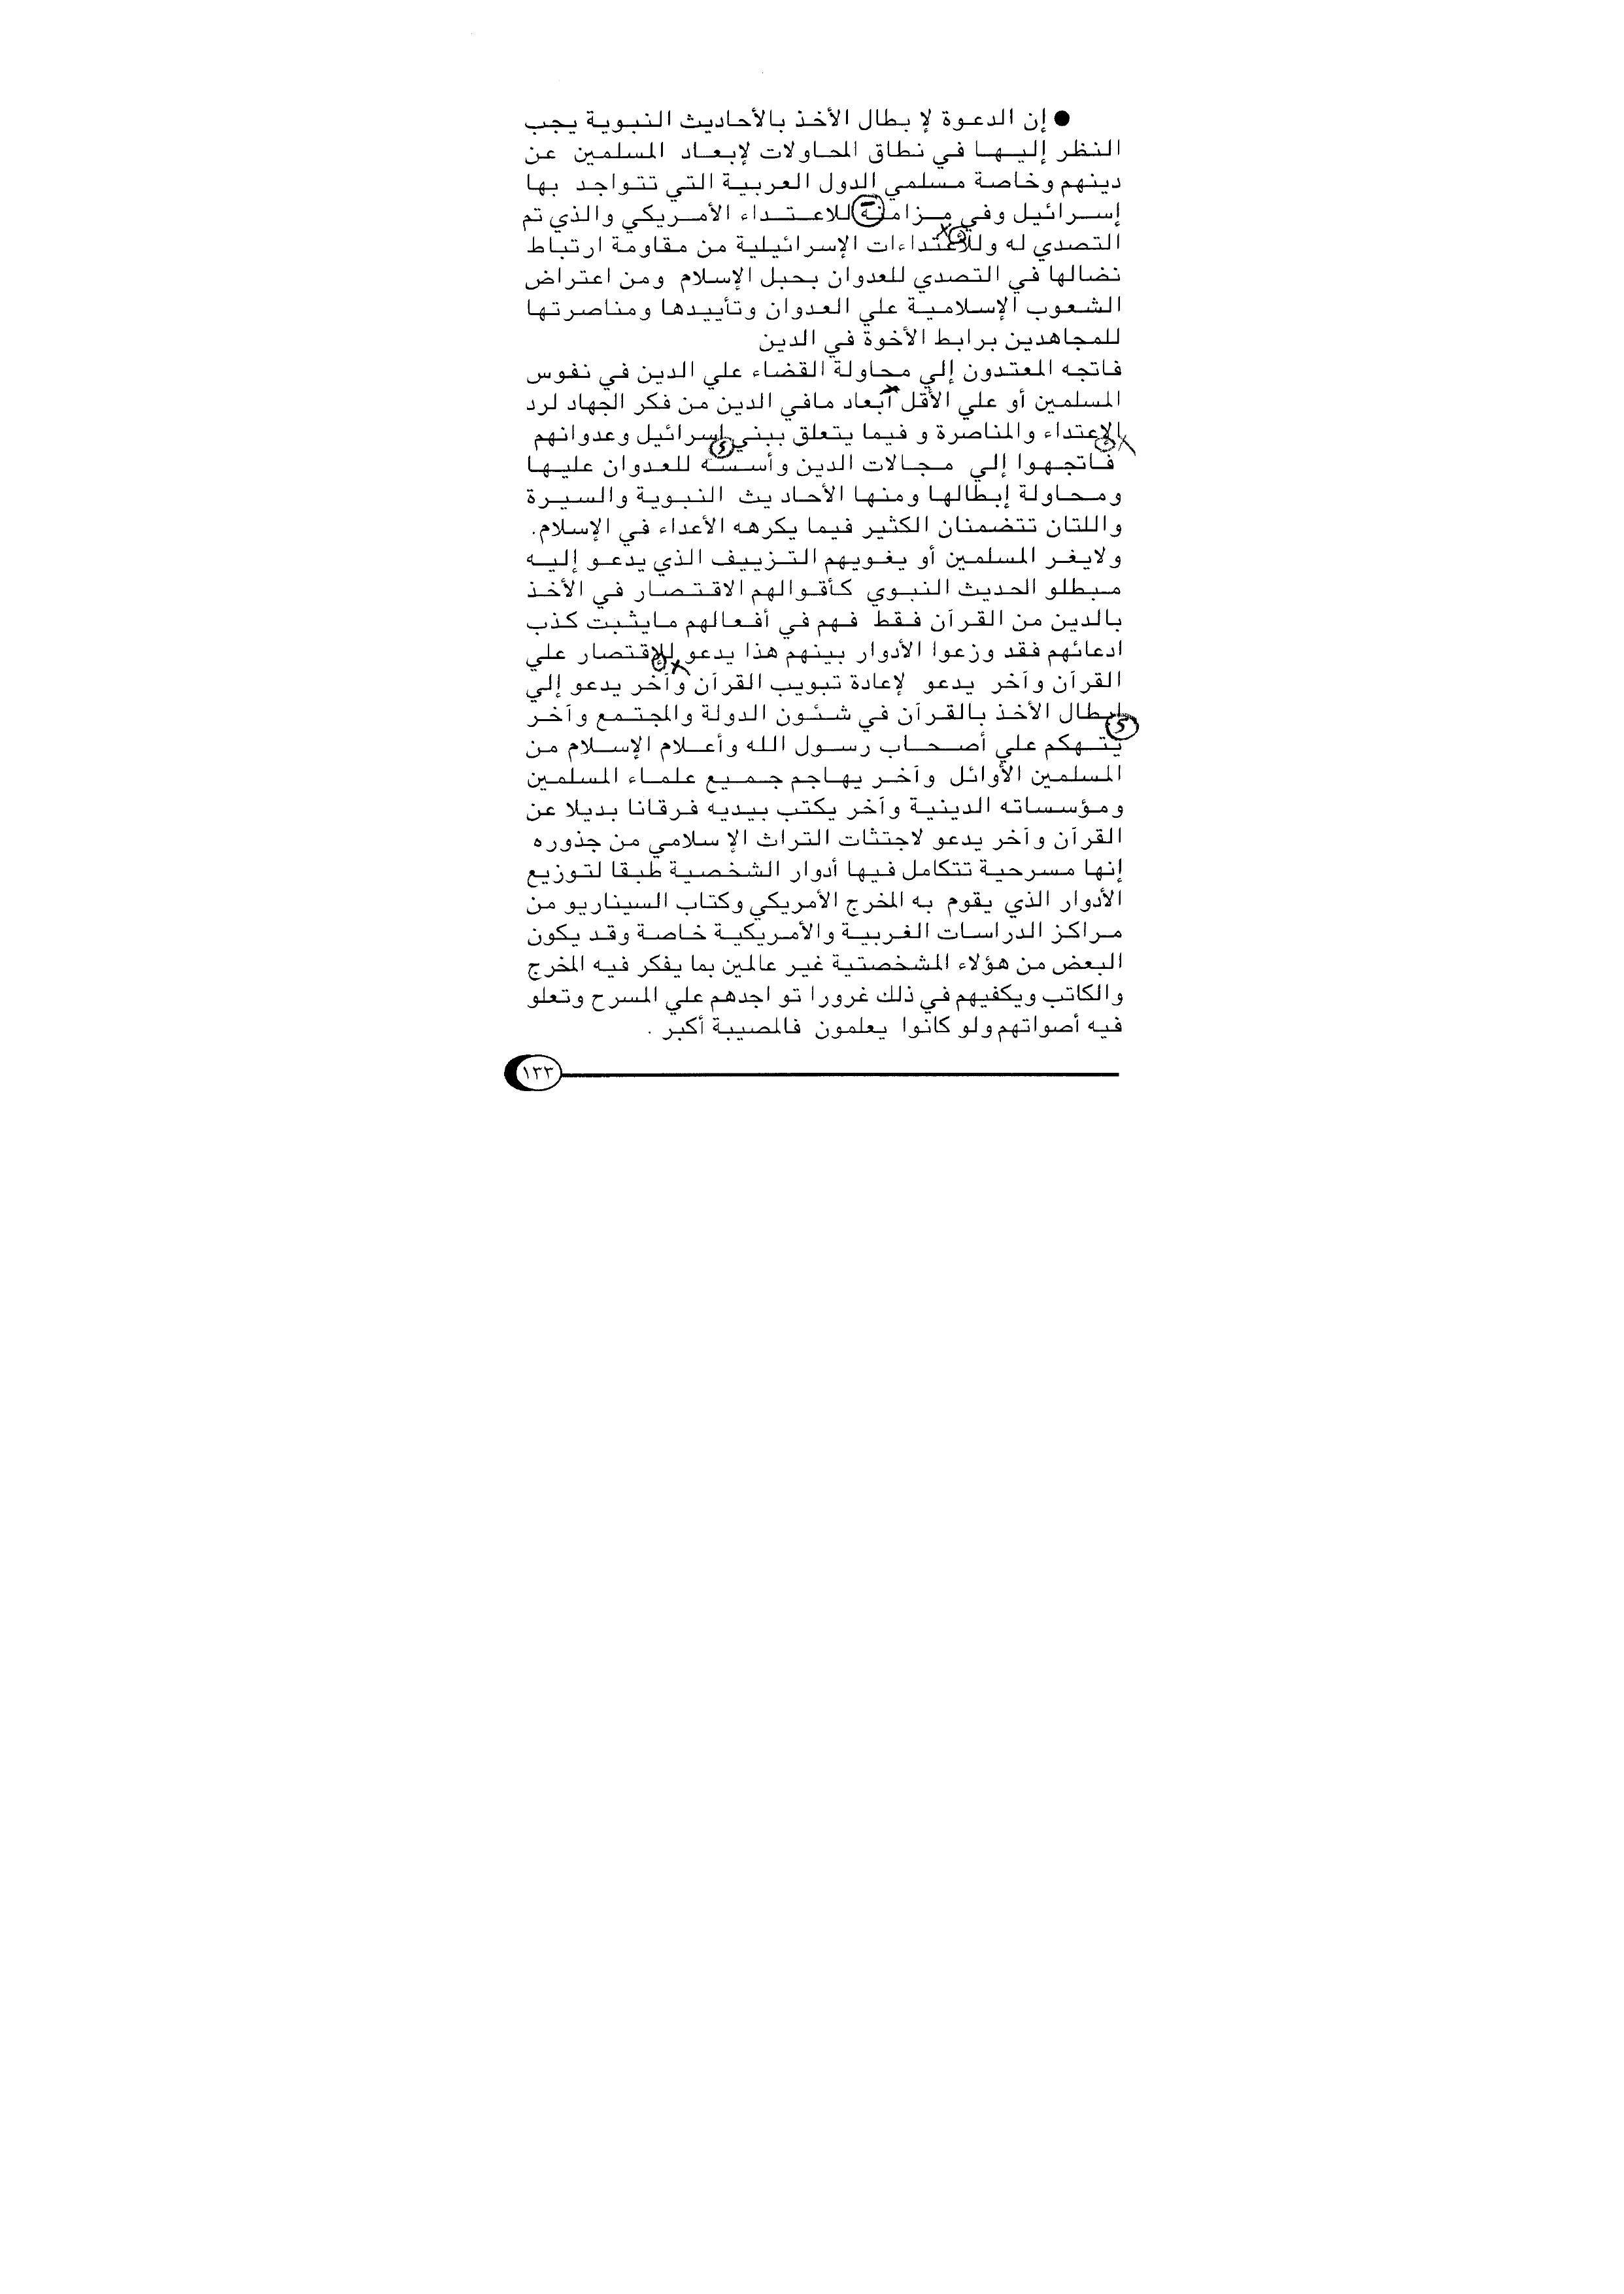 ● إن الدعوة لإ بطال الأخذ بالأحاديث النبوية يجب
النظر إليها في نطاق المحاولات لإبعاد المسلمين عن
دينهم وخاصة مسلمي الدول العربية التي تتواجد بها
إسرائيل وفي مزامنة للاعتداء الأمريكي والذي تم
التصدي له وللاعتداءات الإسرائيلية من مقاومة ارتباط
نضالها في التصدي للعدوان بحبل الإسلام ومن اعتراض
الشعوب الإسلامية علي العدوان وتأييدها ومناصرتها
للمجاهدين برابط الأخوة في الدين
فاتجه المعتدون إلي محاولة القضاء علي الدين في نفوس
المسلمين أو علي الأقل أبعاد مافي الدين من فكر الجهاد لرد
الإعتداء والمناصرة و فيما يتعلق ببني إسرائيل وعدوانهم
فاتجهوا إلي مجالات الدين وأسسه للعدوان عليها
ومحاولة إبطالها ومنها الأحاد يث النبوية والسيرة
واللتان تتضمنان الكثير فيما يكرهه الأعداء في الإسلام.
ولايغر المسلمين أو يغويهم التزييف الذي يدعو إليه
مبطلو الحديث النبوي كأقوالهم الاقتصار في الأخذ
بالدين من القرآن فقط فهم في أفعالهم مايثبت كذب
ادعائهم فقد وزعوا الأدوار بينهم هذا يدعو للإقتصار علي
القرآن وآخر يدعو لإعادة تبويب القرآن وآخر يدعو إلي
إبطال الأخذ بالقرآن في شئون الدولة والمجتمع وآخر
يتهكم علي أصحاب رسول الله وأعلام الإسلام من
المسلمين الأوائل وآخر يهاجم جميع علماء المسلمين
ومؤسساته الدينية وآخر يكتب بيديه فرقانا بديلا عن
القرآن وآخر يدعو لاجتثات التراث الإ سلامي من جذوره
إنها مسرحية تتكامل فيها أدوار الشخصية طبقا لتوزيع
الأدوار الذي يقوم به المخرج الأمريكي وكتاب السيناريو من
مراكز الدراسات الغربية والأمريكية خاصة وقد يكون
البعض من هؤلاء المشخصتية غير عالمين بما يفكر فيه المخرج
والكاتب ويكفيهم في ذلك غرورا تو اجدهم علي المسرح وتعلو
فيه أصواتهم ولو كانوا يعلمون فالمصيبة أكبر .
١٣٣